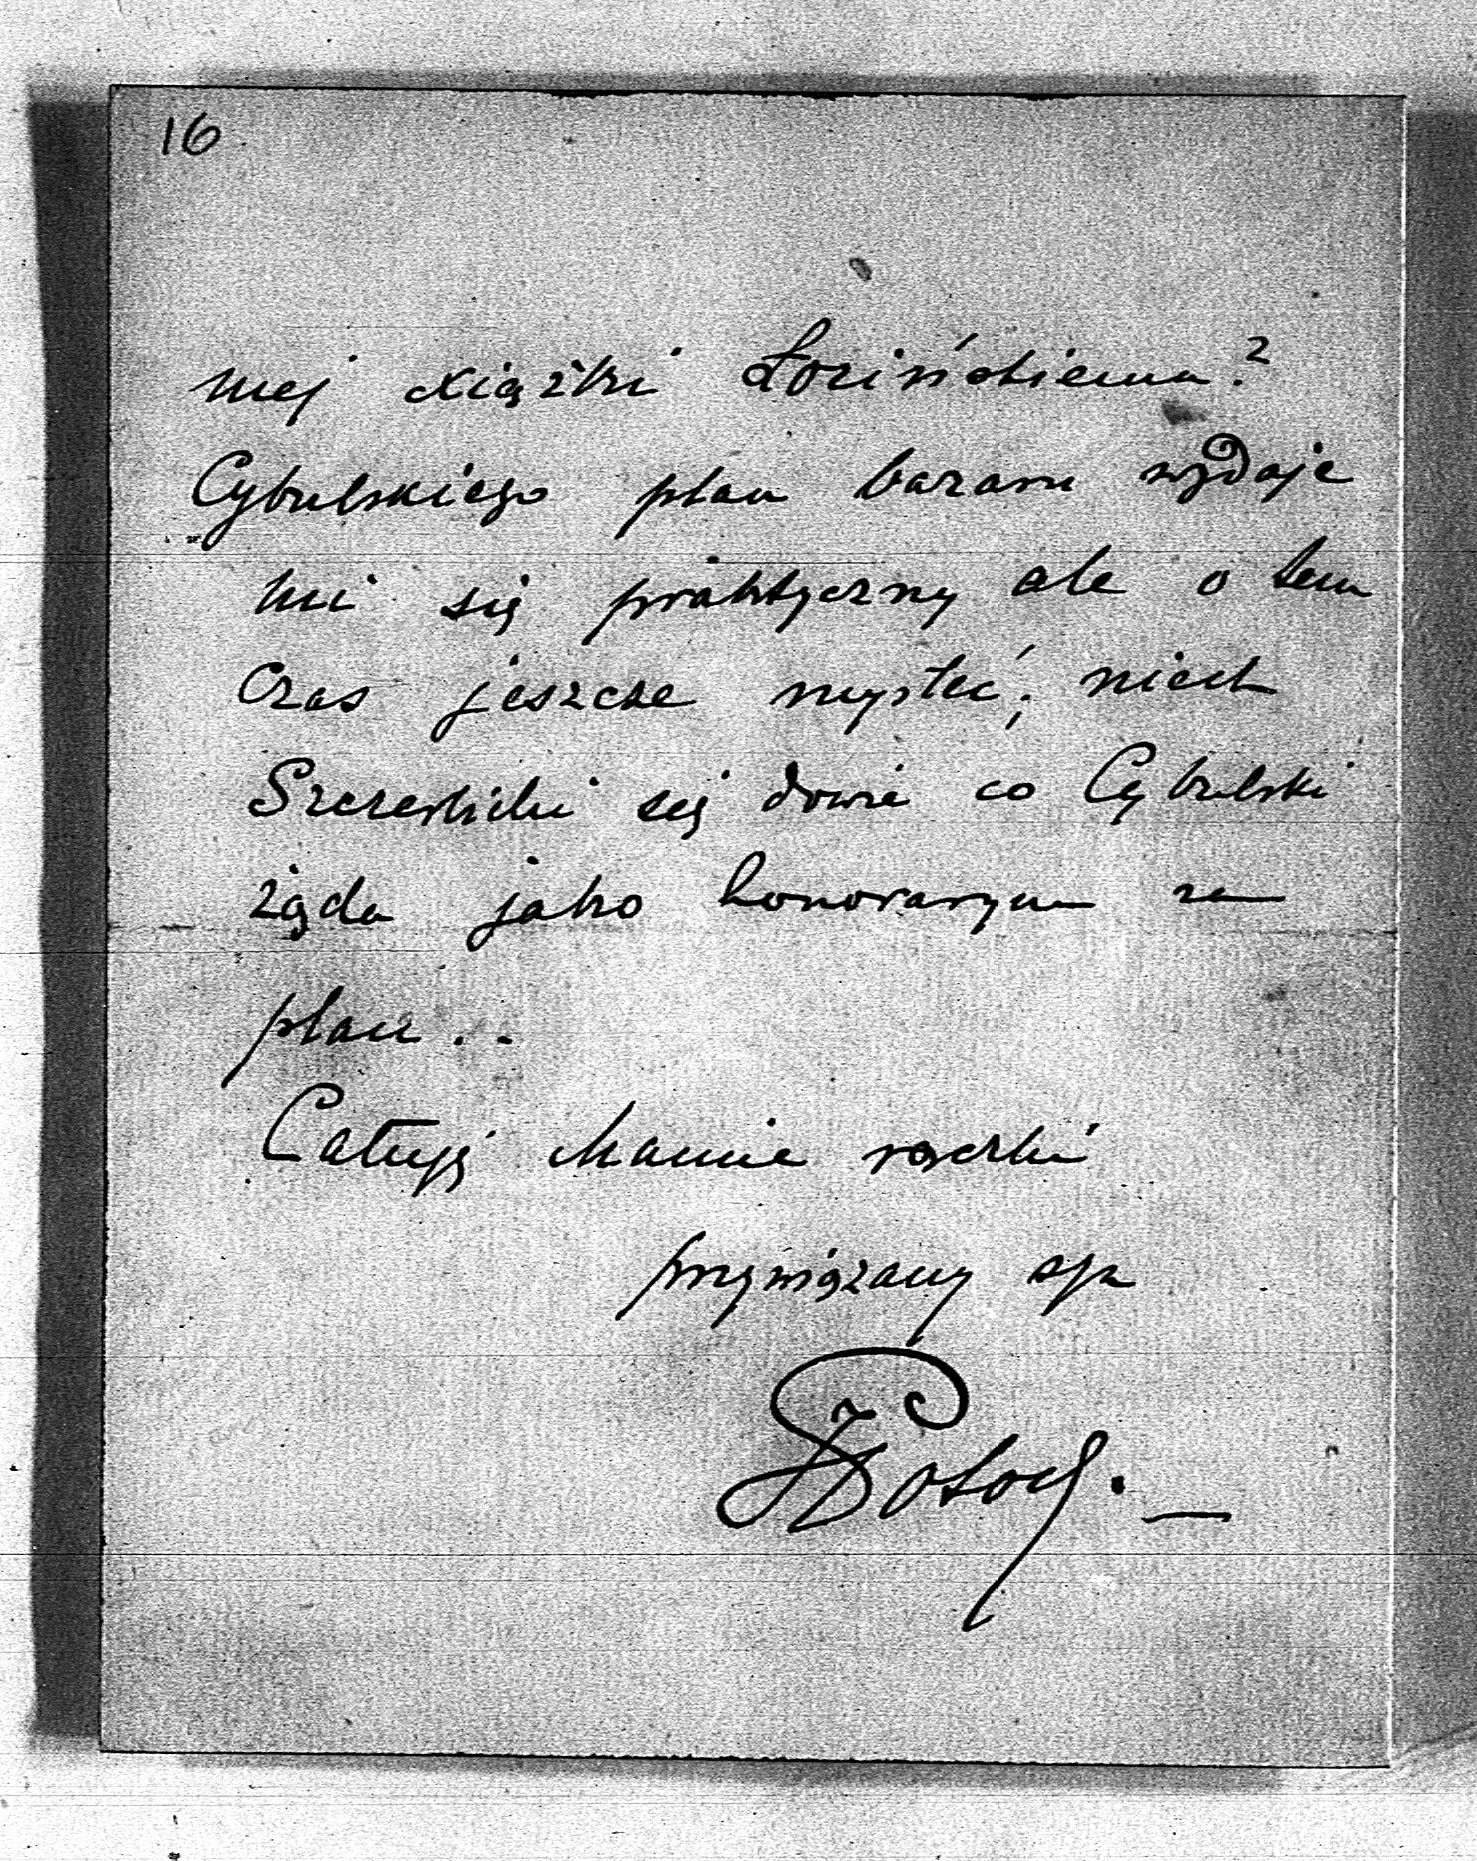 16
mej xiążki Łozińskiemu?
Cybulskiego plan bazaru wydaje
mi się praktyczny ale o tem
czas jeszcze myśleć; niech
się dowie co Cybulski
żąda jako honoraryum za
plan..
Całuję Mamie rączki
przywiązany syn